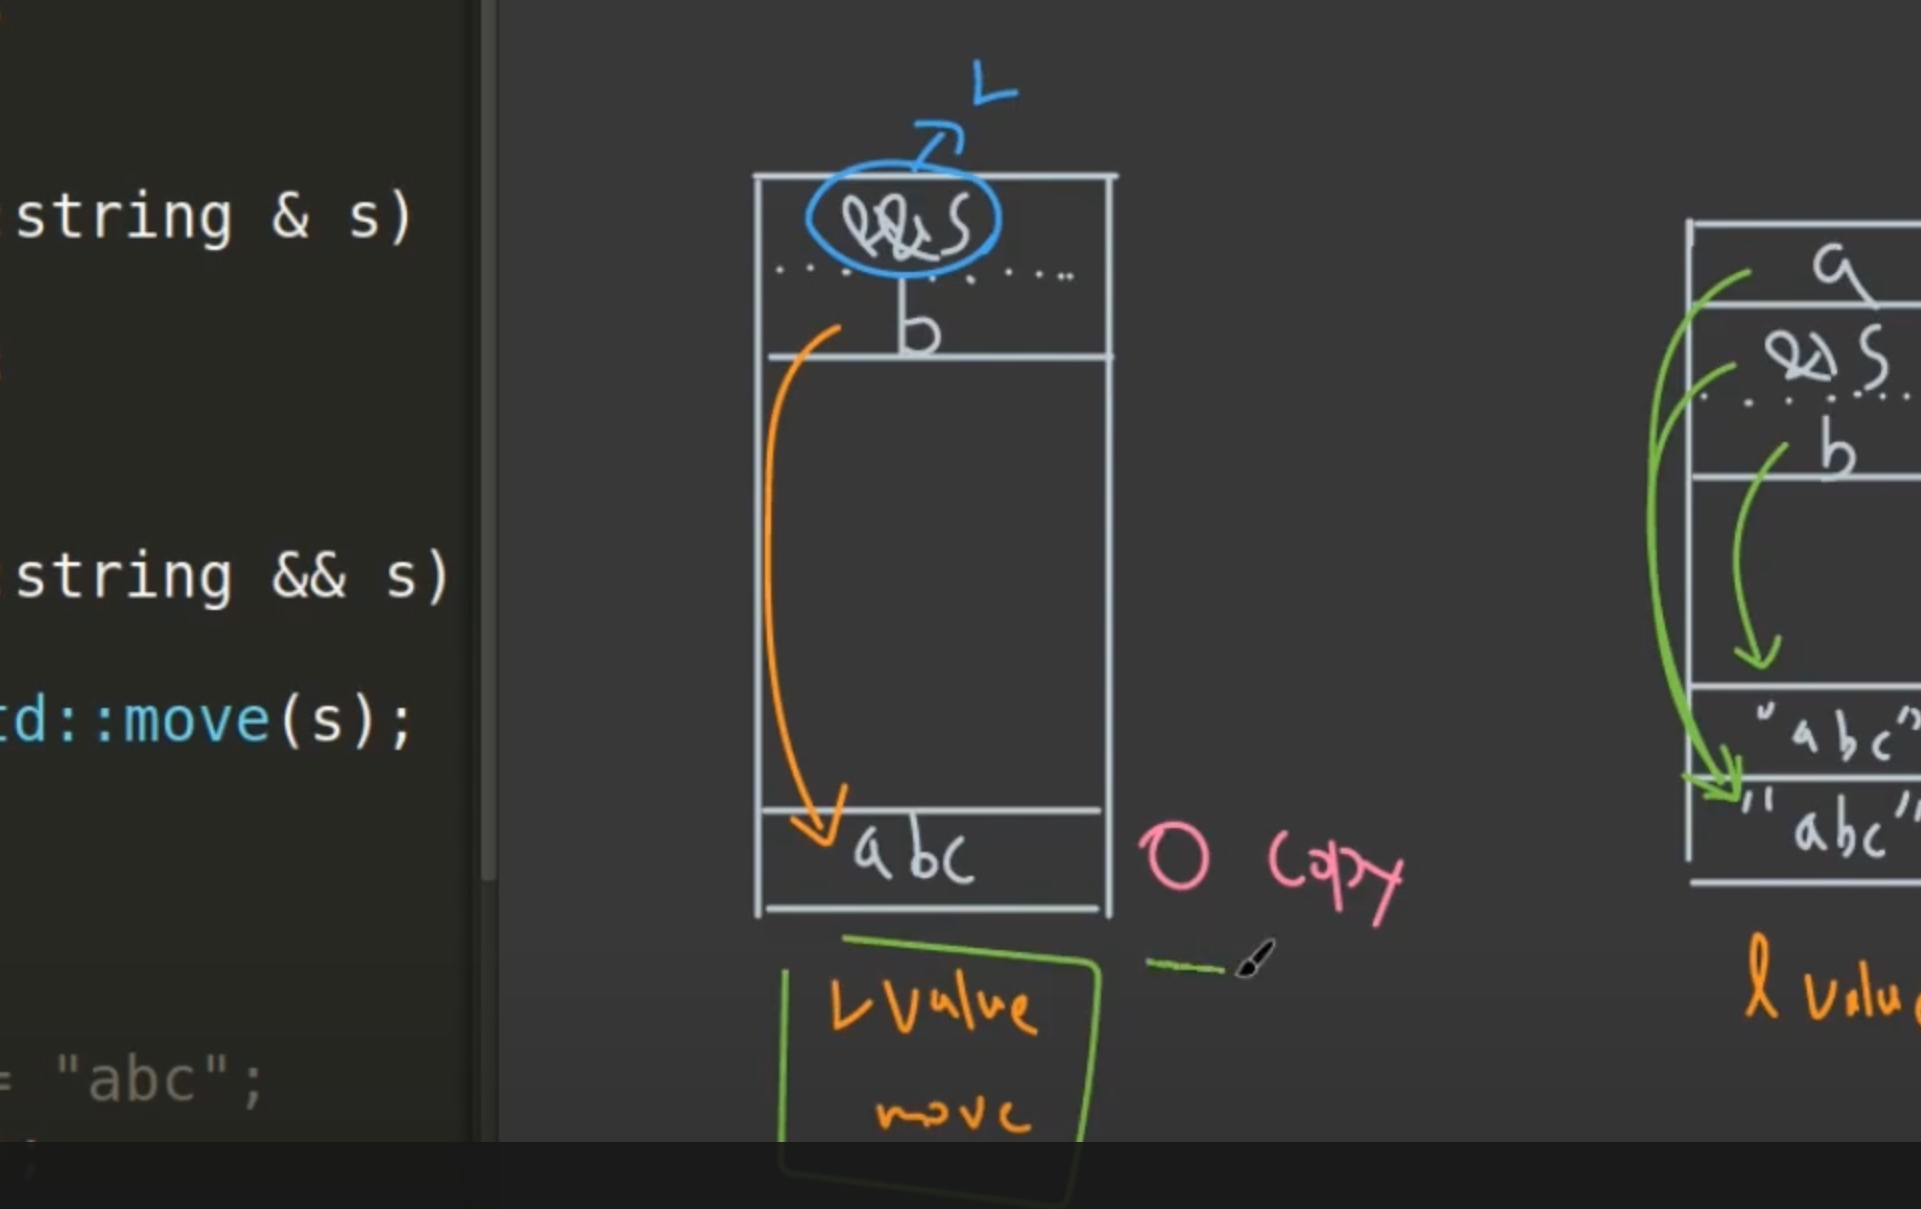 string & s)
string && s)
td::move(s);
= "abc";
;
L
&& S
b
abc
0 copy
L Value
move
a
& S
b
"abc"
"abc"
l value